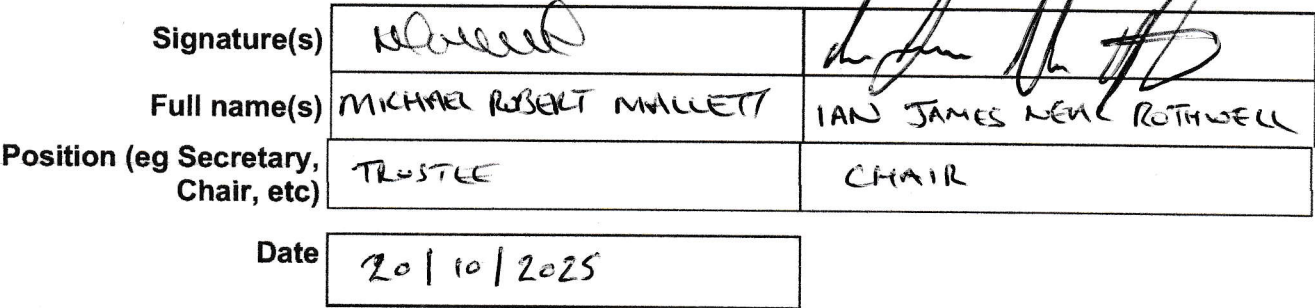 Signature(s)
Full name(s) MICHAEL ROBERT MALLETT IAN JAMES NEAL ROTHWELL
Position (eg Secretary, TRUSTEE CHAIR
Chair, etc)
Date 20/10/2025